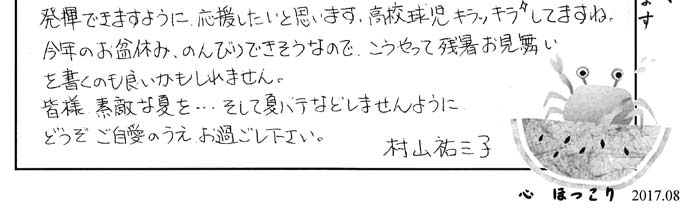 発揮できますように、応援したいと思います。高校球児キラッキラしてますね。
今年のお盆休み、のんびりできそうなので、こうやって残暑お見舞い
を書くのも良いかもしれません。
皆様 素敵な夏を…そして夏バテなどしませんように
どうぞ ご自愛のうえ お過ごし下さい。
村山祐三子
ます
心 ほっこり 2017.08